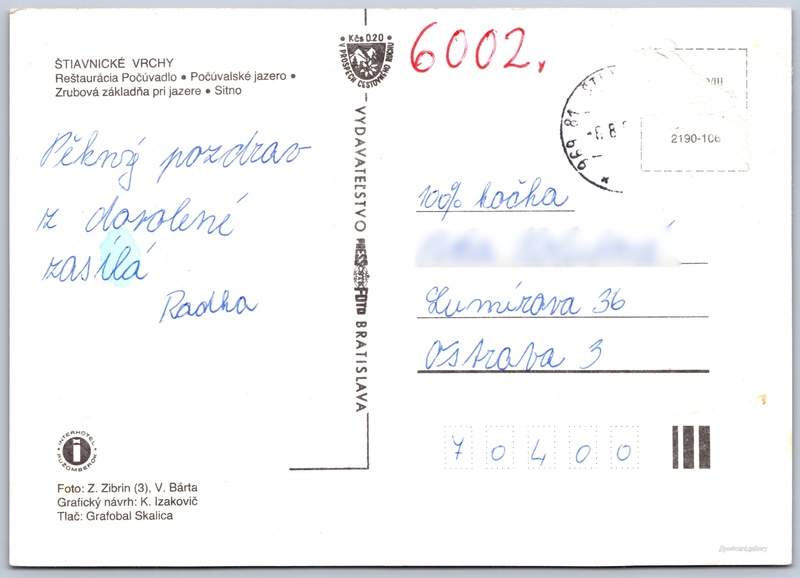 ŠTIAVNICKÉ VRCHY
Reštaurácia Počúvadlo • Počúvalské jazero •
Zrubová základňa pri jazere • Sitno
Pěkný pozdrav
z dovolené
zasílá
Radka
INTERHOTEL
RUŽOMBEROK
Foto: Z. Zibrin (3), V. Bárta
Grafický návrh: K. Izakovič
Tlač: Grafobal Skalica
Kčs 0.20
V PROSPECH CESTOVNÉHO RUCHU
VYDAVATEĽSTVO PRESSFOTO BRATISLAVA
6002.
969 81
-6. 8.
2190-106
100% kočka
Lumírova 36
Ostrava 3
70400